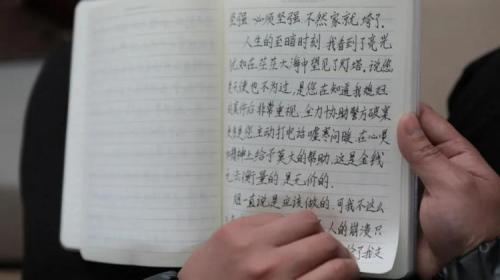 坚强，必须坚强，不然家就垮了.
人生的至暗时刻，我看到了亮光，
犹如在茫茫大海中望见了灯塔. 说您
是天使也不为过，是您在知道我媳妇
的案件后非常重视，全力协助警方破案
您主动打电话嘘寒问暖，在心灵
和精神上给予莫大的帮助. 这是金钱
无法衡量的 是无价的.
您一直说是应该做的. 可我不这么
人的崩溃只